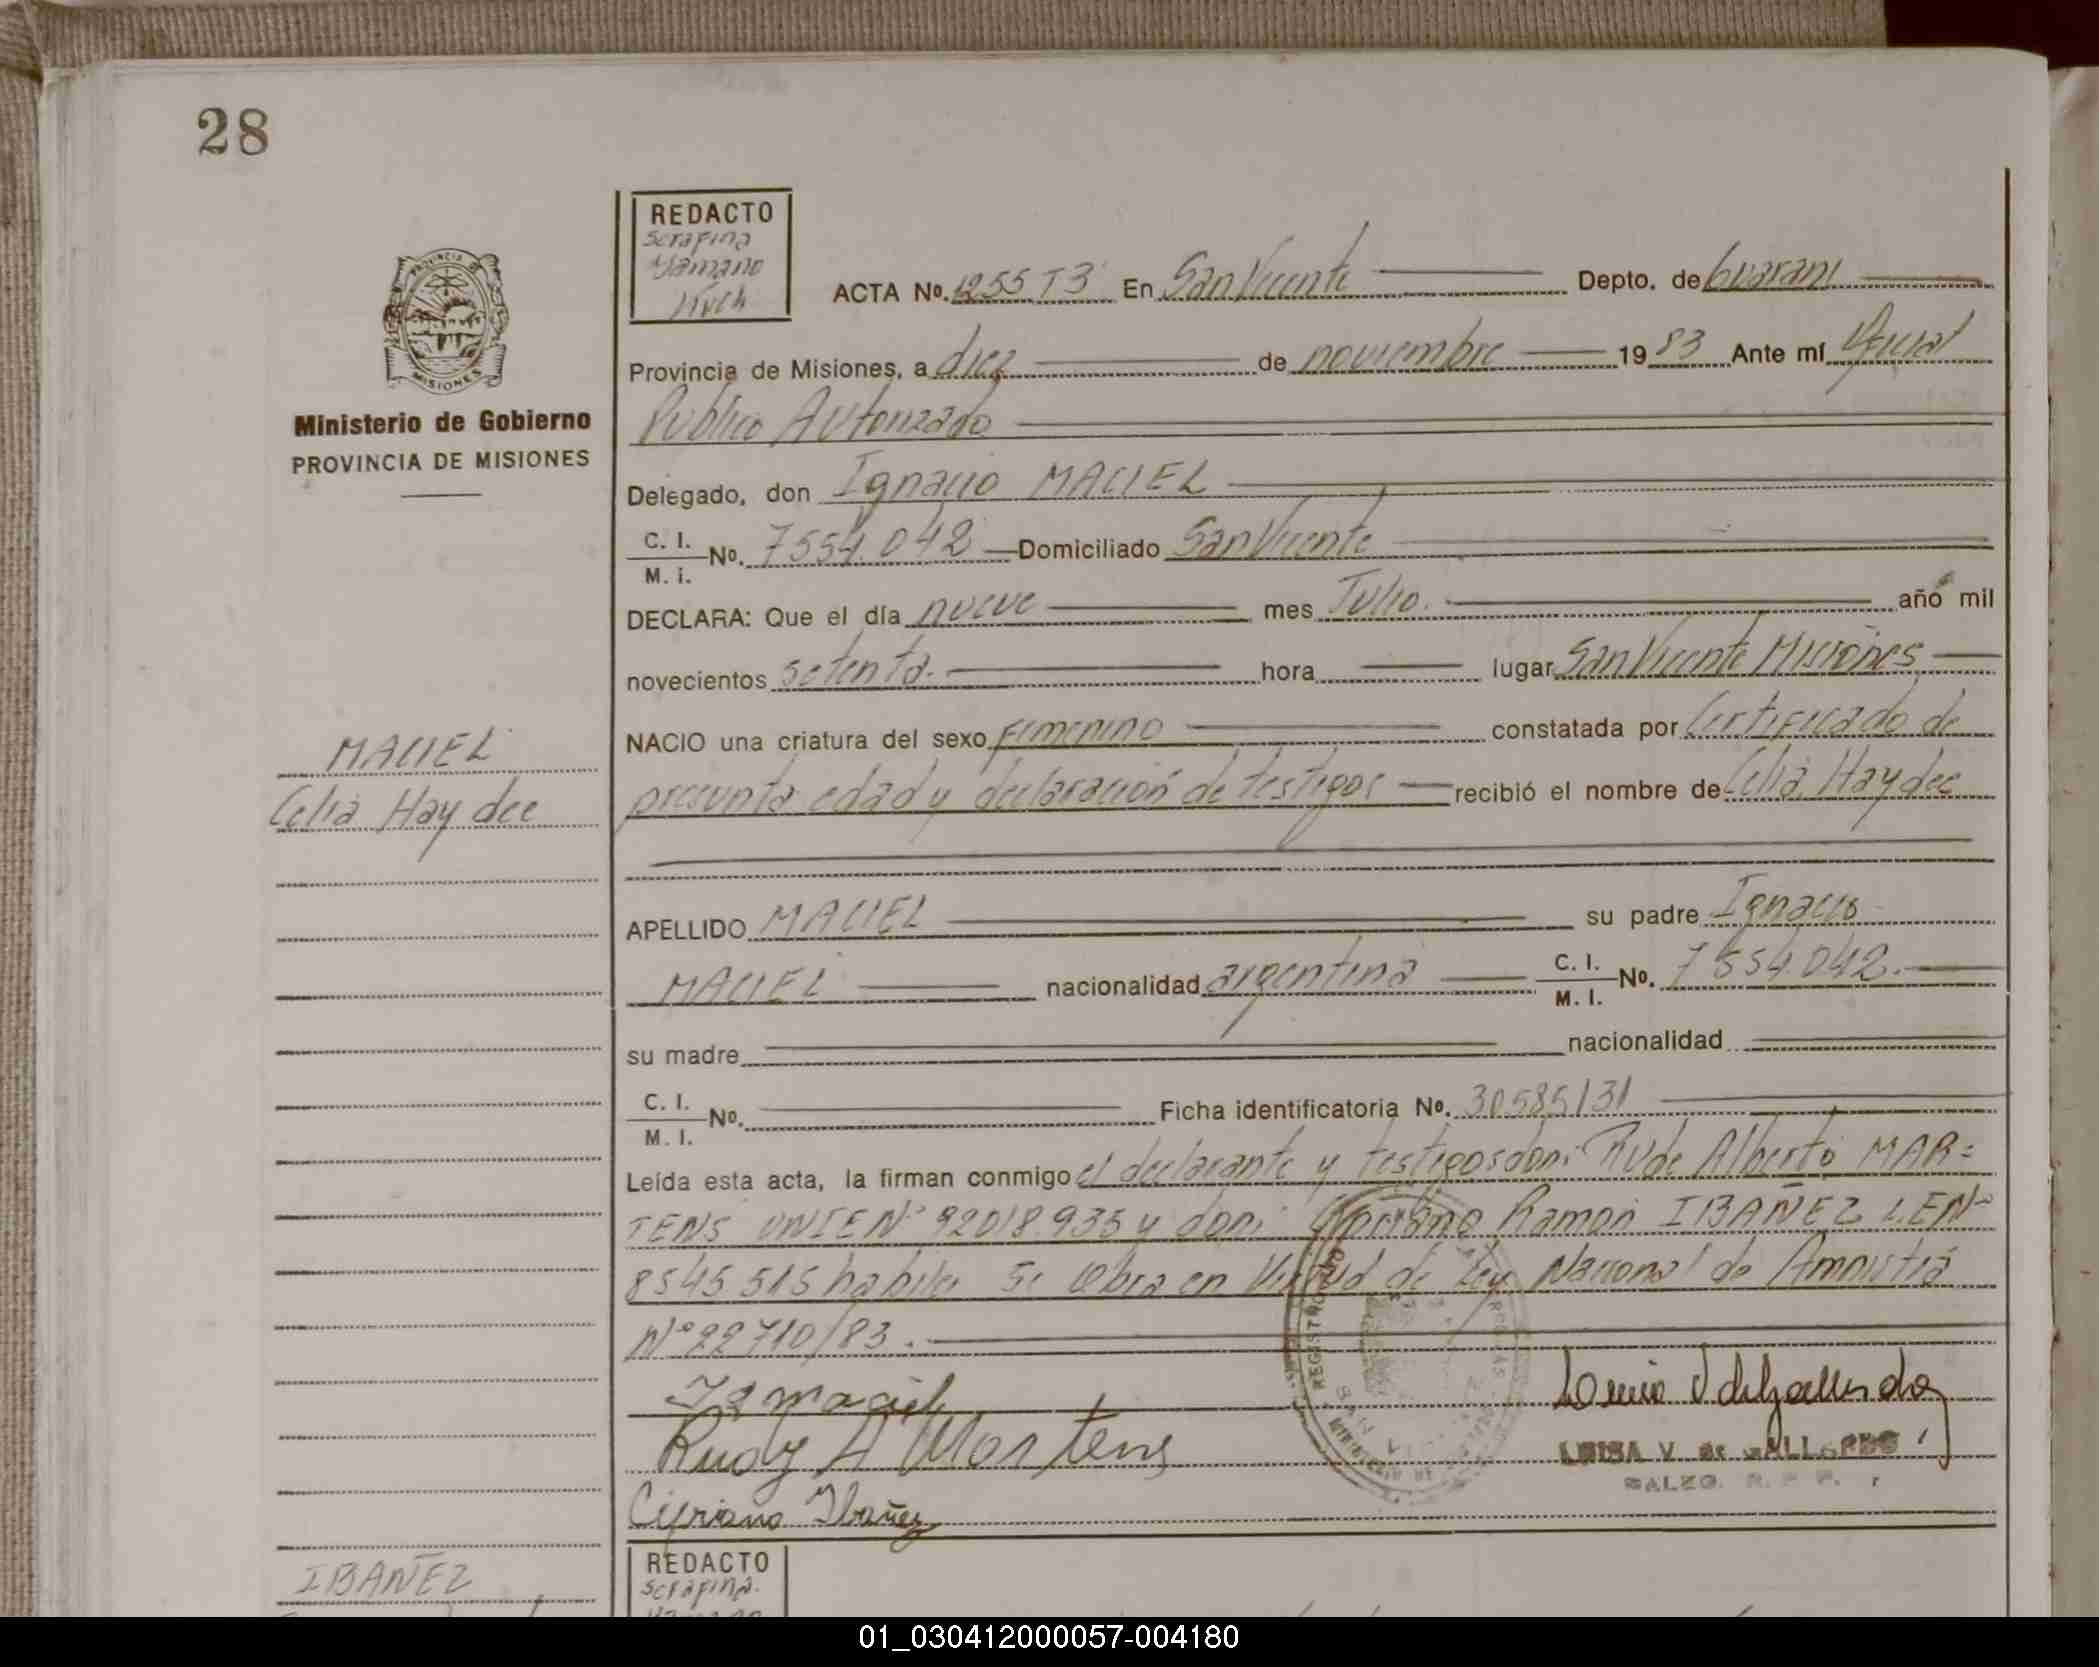 28
REDACTO
Serafina
Kuch
PROVINCIA DE
MISIONES
Ministerio de Gobierno
PROVINCIA DE MISIONES
ACTA No. 1255 T3 En San Vicente Depto. de Guaraní
Provincia de Misiones, a diez de noviembre 1983 Ante mí Oficial
Público Autorizado
Delegado, don Ignacio MACIEL
C. I. / M. i. No. 7554.042 Domiciliado San Vicente
DECLARA: Que el día nueve mes Julio. año mil
novecientos setenta. hora lugar San Vicente Misiones
NACIO una criatura del sexo femenino constatada por Certificado de
presunta edad y declaración de testigos recibió el nombre de Celia Haydee
MACIEL
Celia Haydee
APELLIDO MACIEL su padre Ignacio
MACIEL nacionalidad argentina C. I. / M. I. No. 7554.042.
su madre nacionalidad
C. I. / M. I. No. Ficha identificatoria No. 30585131
Leída esta acta, la firman conmigo el declarante y testigos don: Rude Alberto MAR=
TENS DNIE Nº 92018.935 y don: Cipriano Ramon IBAÑEZ L.E Nº
8545515 habiles Se Obra en Virtud de Ley Nacional de Amnistía
Nº 22710/83.
Ig maciel
Rudy A Martens
Cipriano Ibañez
LUISA V. de GALLARDO
REGISTRO
SAN VIC
MINISTERIO DE
IBAÑEZ
REDACTO
Serafina
01_030412000057-004180